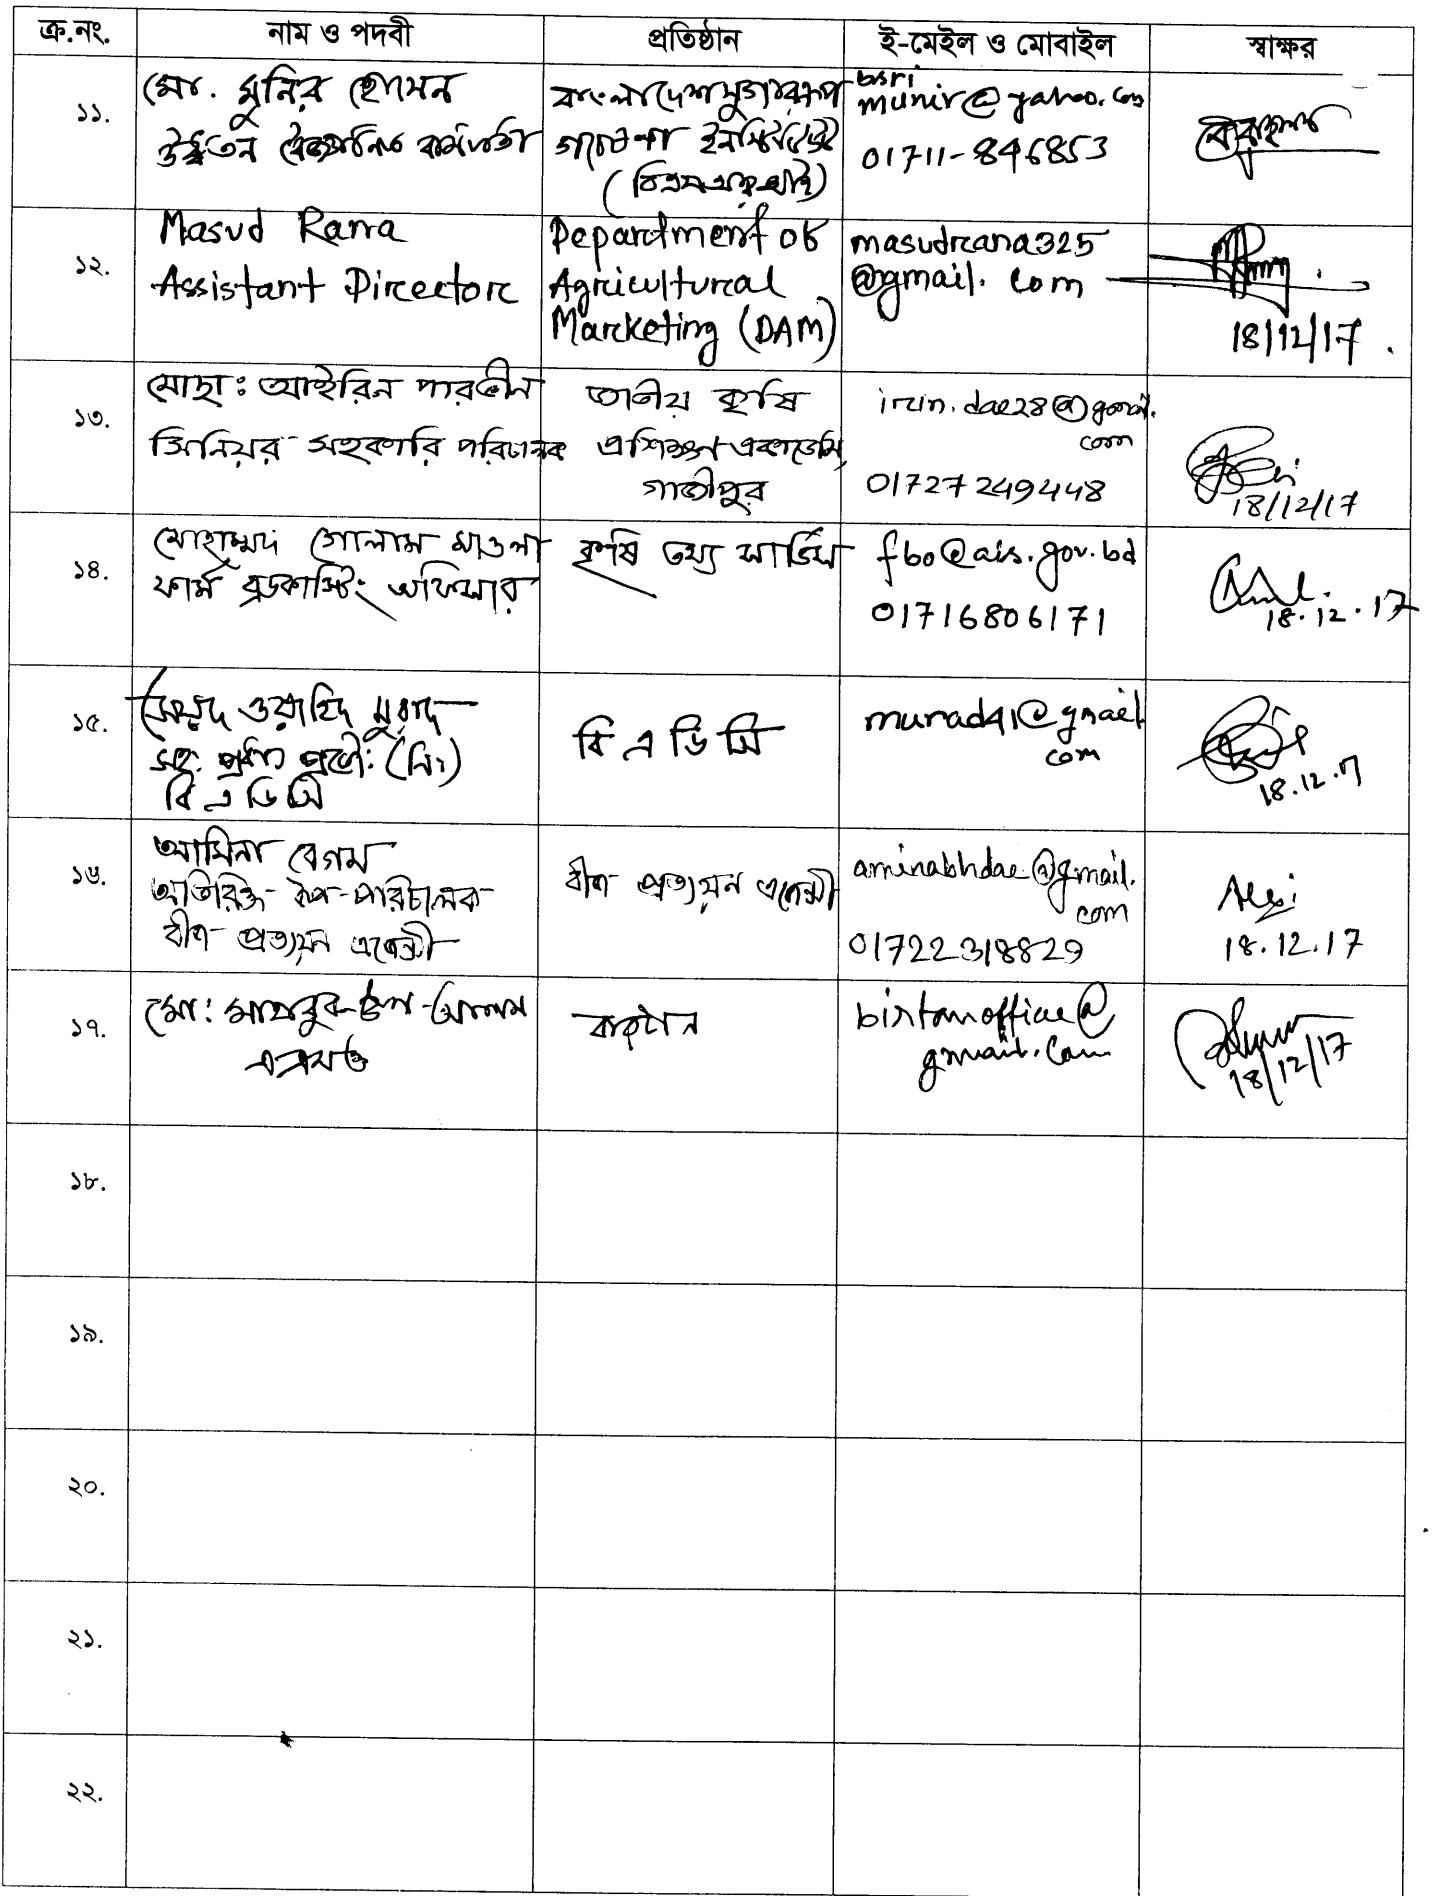 ক্র.নং. নাম ও পদবী প্রতিষ্ঠান ই-মেইল ও মোবাইল স্বাক্ষর
১১.
মো. মুনির হোসেন
উর্দ্ধতন বৈজ্ঞানিক কর্মকর্তা
বাংলাদেশ সুগারক্রপ
গবেষণা ইনস্টিটিউট
(বিএসআরআই)
bsri
munir@yahoo.com
01711-846853
১২.
Masud Rana
Assistant Director
Department of
Agricultural
Marketing (DAM)
masudrana325
@gmail.com
18/12/17.
১৩.
মোছা: আইরিন পারভীন
সিনিয়র সহকারি পরিচালক
জাতীয় কৃষি
প্রশিক্ষণ একাডেমি,
গাজীপুর
irin.dae28@gmail.
com
01727249448
18/12/17
১৪.
মোহাম্মদ গোলাম মাওলা
ফার্ম ব্রডকাস্টিং অফিসার
কৃষি তথ্য সার্ভিস
fbo@ais.gov.bd
01716806171
18.12.17
১৫.
সৈয়দ ওয়াহিদ মুরাদ
সহ. প্রধান প্রকৌ:
বি এ ডি সি
বি এ ডি সি
murad41@gmail.
com
18.12.17
১৬.
আমিনা বেগম
অতিরিক্ত উপ-পরিচালক
বীজ প্রত্যয়ন এজেন্সী
বীজ প্রত্যয়ন এজেন্সী
aminabhdae@gmail.
com
01722318829
18.12.17
১৭.
মো: মাহবুব-উল-আলম
এসএসও
বারটান
birtanoffice@
gmail.com
18/12/17
১৮.
১৯.
২০.
২১.
২২.